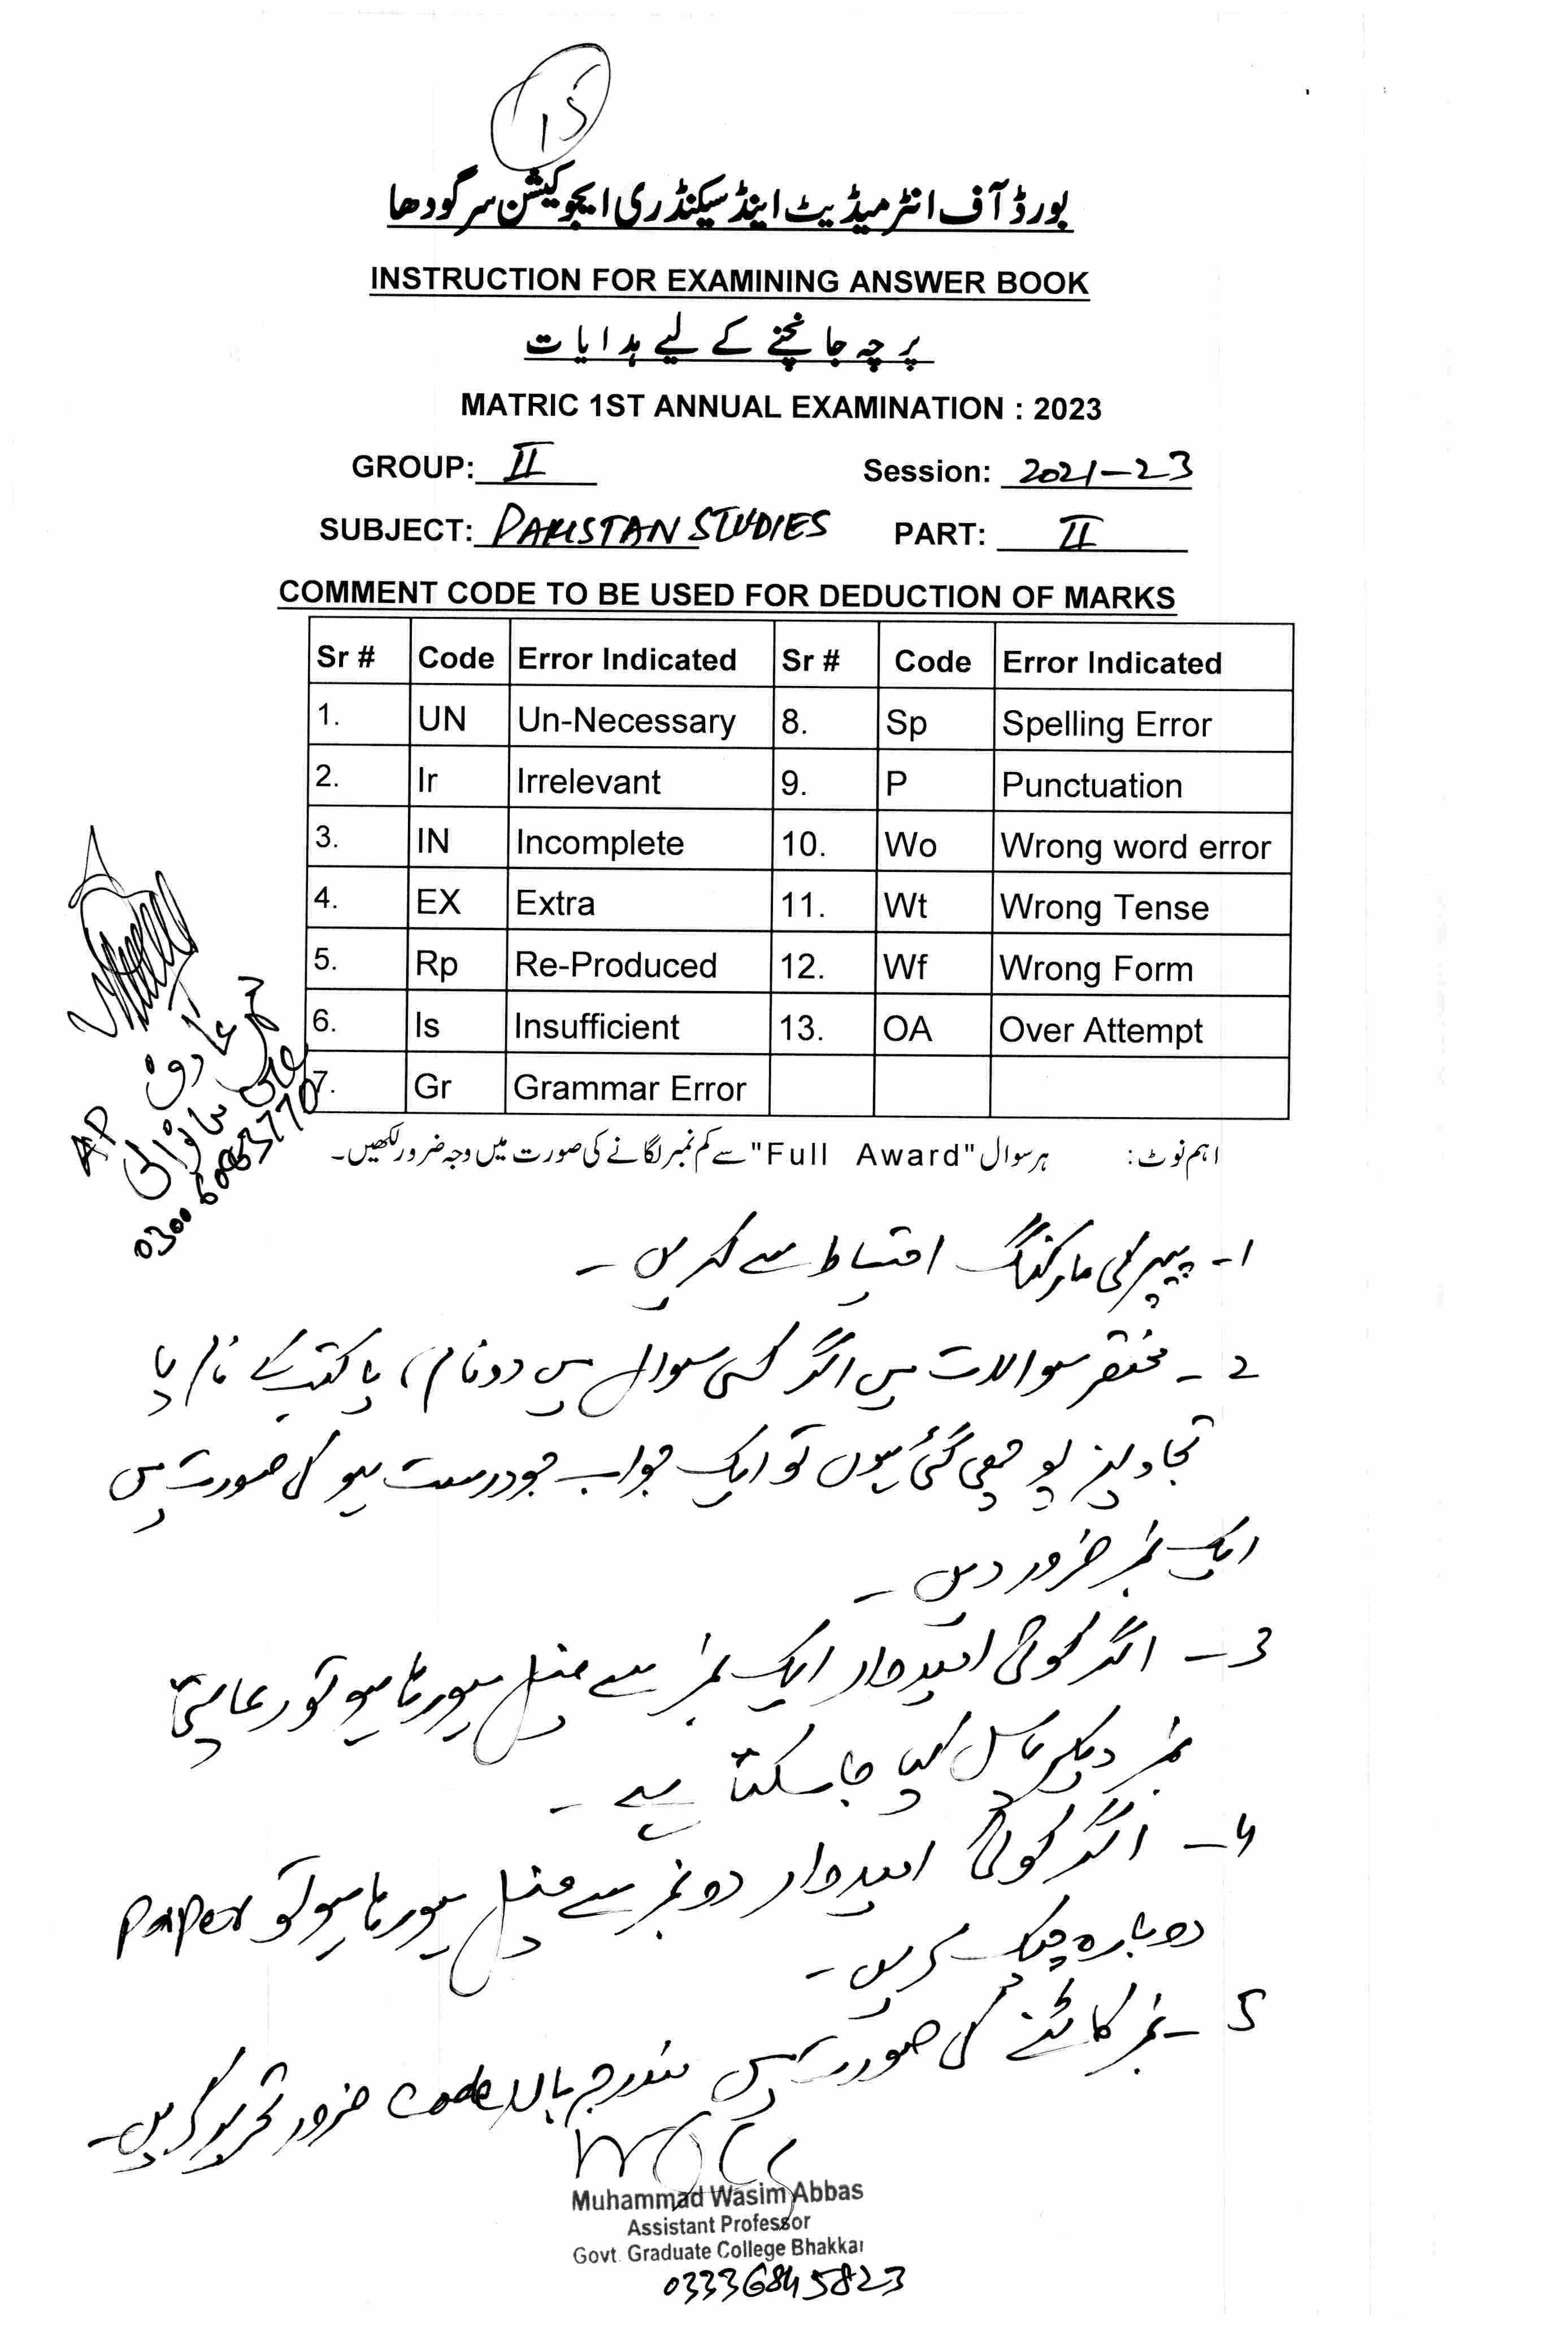 15
بورڈ آف انٹرمیڈیٹ اینڈ سیکنڈری ایجوکیشن سرگودھا
INSTRUCTION FOR EXAMINING ANSWER BOOK
پرچہ جانچنے کے لیے ہدایات
MATRIC 1ST ANNUAL EXAMINATION : 2023
GROUP: II Session: 2021-23
SUBJECT: PAKISTAN STUDIES PART: II
COMMENT CODE TO BE USED FOR DEDUCTION OF MARKS
Sr # Code Error Indicated Sr # Code Error Indicated
1. UN Un-Necessary 8. Sp Spelling Error
2. Ir Irrelevant 9. P Punctuation
3. IN Incomplete 10. Wo Wrong word error
4. EX Extra 11. Wt Wrong Tense
5. Rp Re-Produced 12. Wf Wrong Form
6. Is Insufficient 13. OA Over Attempt
7. Gr Grammar Error
اہم نوٹ: ہر سوال "Full Award" سے کم نمبر لگانے کی صورت میں وجہ ضرور لکھیں۔
1- پیپر کی مارکنگ احتیاط سے کریں ۔
2 - مختصر سوالات میں اگر کسی سوال میں دو نام، یا کتب کے نام یا
تجاویز پوچھی گئی ہوں تو ایک جواب جو درست ہو کی صورت میں
ایک نمبر ضرور دیں ۔
3 - اگر کوئی امیدوار ایک نمبر سے فیل ہو رہا ہو تو رعایتی
نمبر دیکر پاس کیا جا سکتا ہے ۔
4 - اگر کوئی امیدوار دو نمبر سے فیل ہو رہا ہو تو Paper
دوبارہ چیک کریں ۔
5 - نمبر کاٹنے کی صورت میں مندرجہ بالا Code ضرور تحریر کریں۔
محمد عارف
AP
0300 6083770
Muhammad Wasim Abbas
Assistant Professor
Govt. Graduate College Bhakkar
03336845823